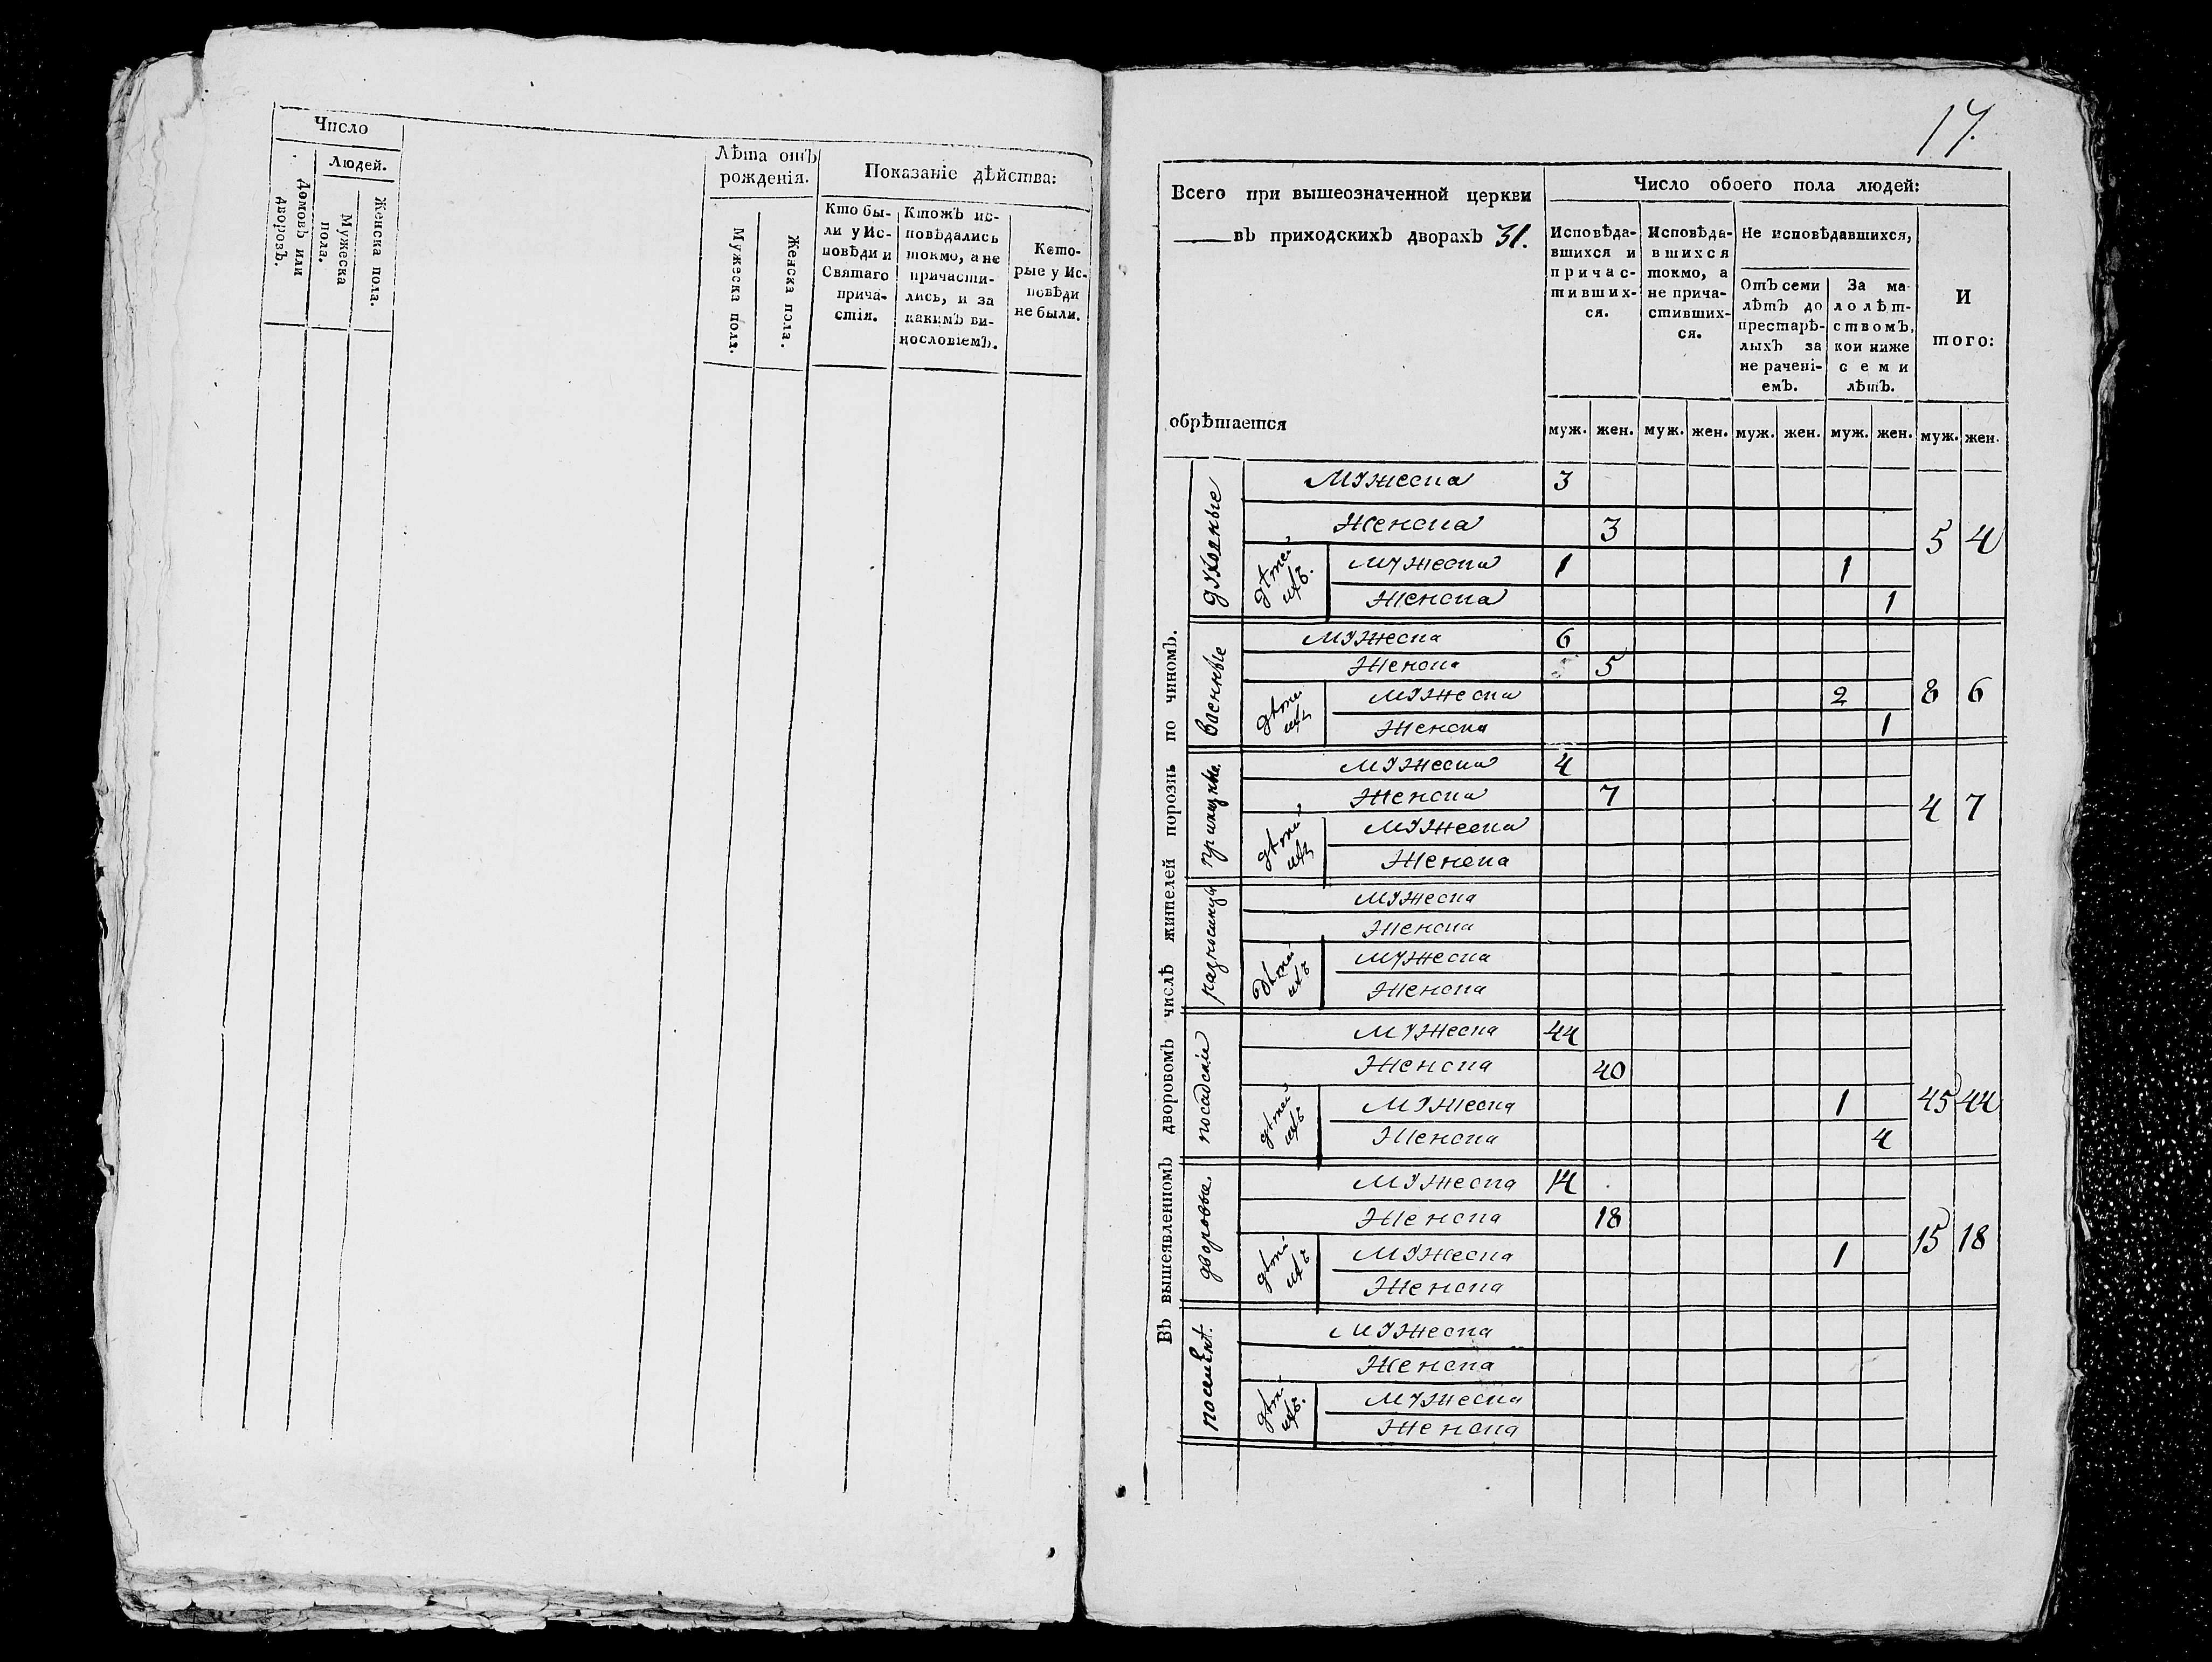 Число
Людей.
Домовъ или
дворовъ.
Мужеска
пола.
Женска пола.
Лѣта отъ
рожденія.
Мужеска пола.
Женска пола.
Показаніе дѣйства:
Кто бы-
ли у Ис-
повѣди и
Святаго
прича-
стія.
Ктожъ ис-
повѣдались
токмо, а не
причасти-
лись, и за
какимъ ви-
нословіемъ.
Кото-
рые у Ис-
повѣди
не были.
17.
Всего при вышеозначенной церкви
въ приходскихъ дворахъ 31.
обрѣтается
Число обоего пола людей:
Исповѣда-
вшихся и
причас-
тивших-
ся.
Исповѣда-
вшихся
токмо, а
не прича-
стивших-
ся.
Не исповѣдавшихся,
Отъ семи
лѣтъ до
престарѣ-
лыхъ за
не рачені-
емъ.
За ма-
лолѣт-
ствомъ,
кои ниже
семи
лѣтъ.
И
того:
муж. жен. муж. жен. муж. жен. муж. жен. муж. жен.
Въ вышеявленномъ дворовомъ числѣ жителей порознь по чиномъ.
духовные
Мужеска 3
Женска 3
5 4
дѣтей
ихъ.
Мужеска 1 1
Женска 1
военные
Мужеска 6
Женска 5
8 6
дѣтей
ихъ
Мужеска 2
Женска 1
приказные.
Мужеска 4
Женска 7
4 7
дѣтей
ихъ
Мужеска
Женска
разночинцы
Мужеска
Женска
дѣтей
ихъ
Мужеска
Женска
посадскіе
Мужеска 44
Женска 40
45 44
дѣтей
ихъ
Мужеска 1
Женска 4
дворовые.
Мужеска 14
Женска 18
15 18
дѣтей
ихъ
Мужеска 1
Женска
Мужеска
Женска
дѣтей
ихъ.
Мужеска
Женска